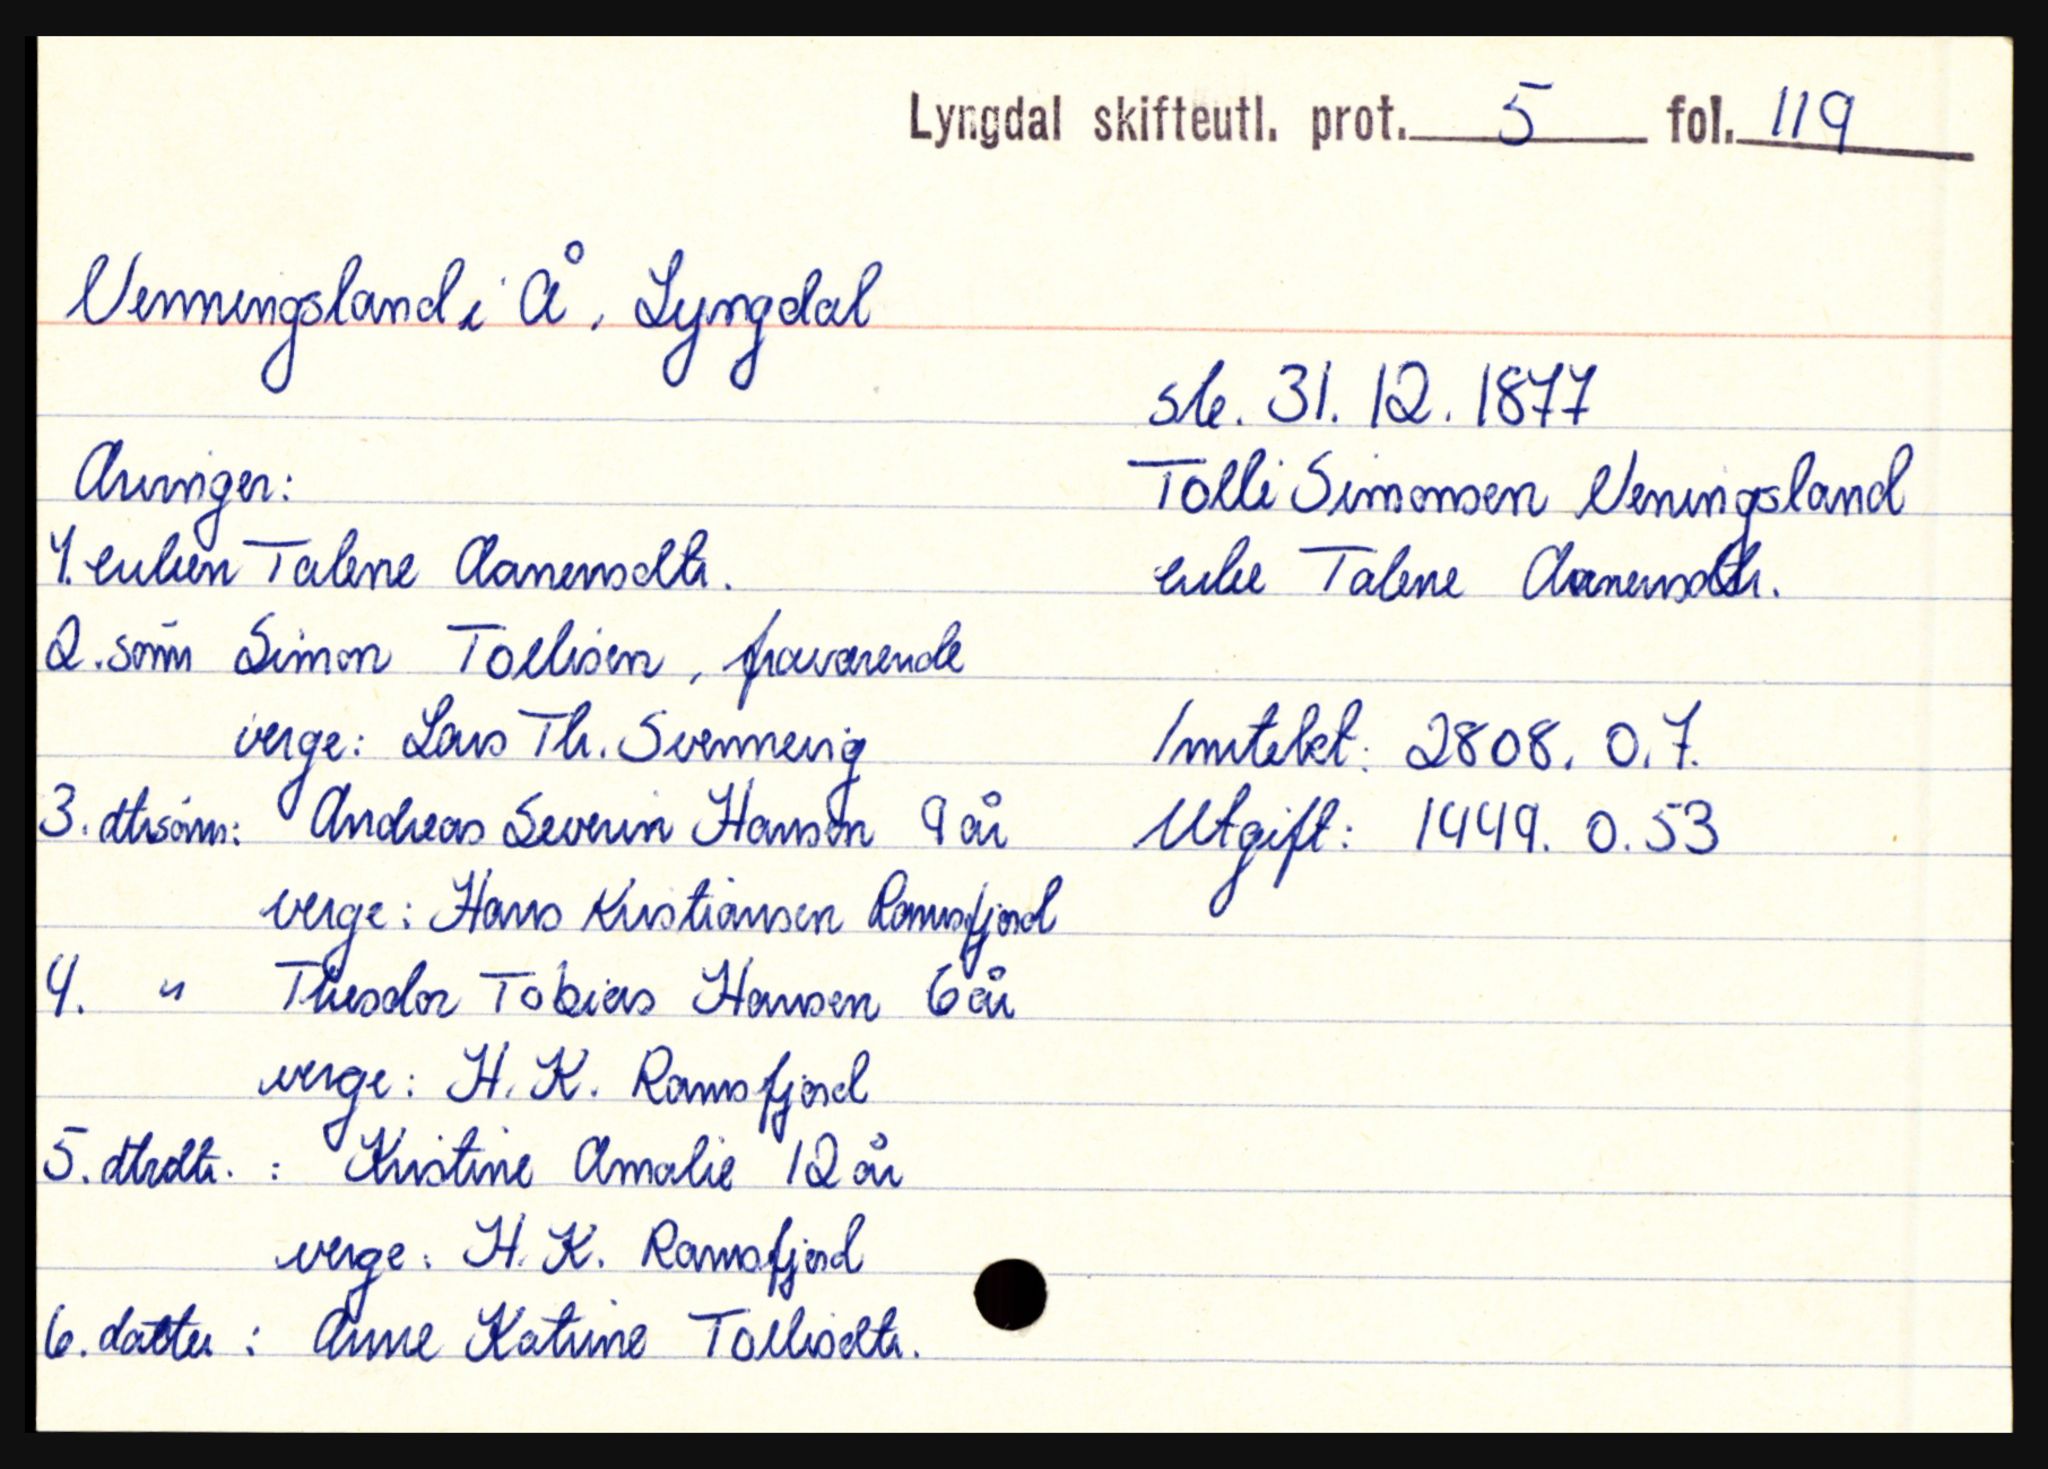 Lyngdal skifteutl. prot. 5 fol. 119
Venningsland i Å, Lyngdal
sk. 31. 12. 1877
Arvinger:
Tolli Simonsen Veningsland
1. enken Talene Aanensdtr.
enke Talene Aanensdtr.
2. sønn Simon Tollisen, fraværende
verge: Lars Th. Svennevig
Inntekt: 2808. 0. 7.
3. dtrsønn: Andreas Severin Hansen 9 år
Utgift: 1449. 0. 53
verge: Hans Kristiansen Ramsfjord
4. " Theodor Tobias Hansen 6 år
verge: H. K. Ramsfjord
5. dtrdtr. : Kristine Amalie 12 år
verge: H. K. Ramsfjord
6. datter : Anne Katrine Tollisdtr.